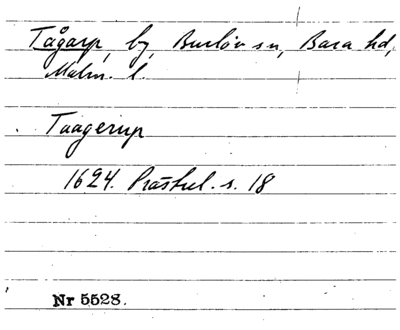 Tågarp, by, Burlöv sn, Bara hd,
Malm. l.
Taagerup
1624. Prästrel. s. 18
Nr 5528.